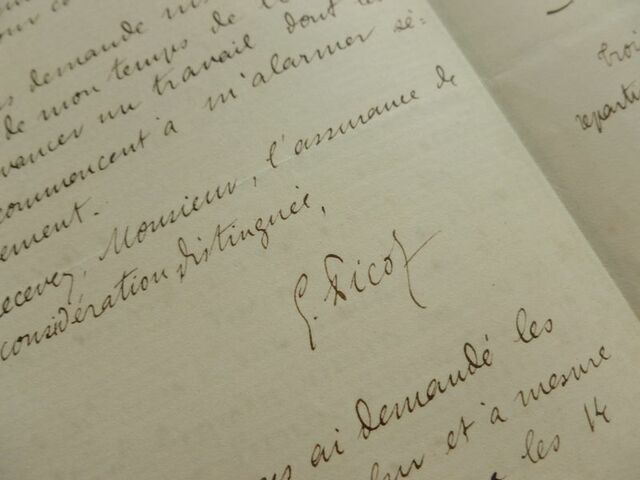 demande
de mon temps de l
vancer un travail dont le
commencent à m'alarmer sé=
ement.
ecevez, Monsieur, l'assurance de
considération distinguée,
G. Picot
ai demandé les
et à mesure
les 14
troi
reparti